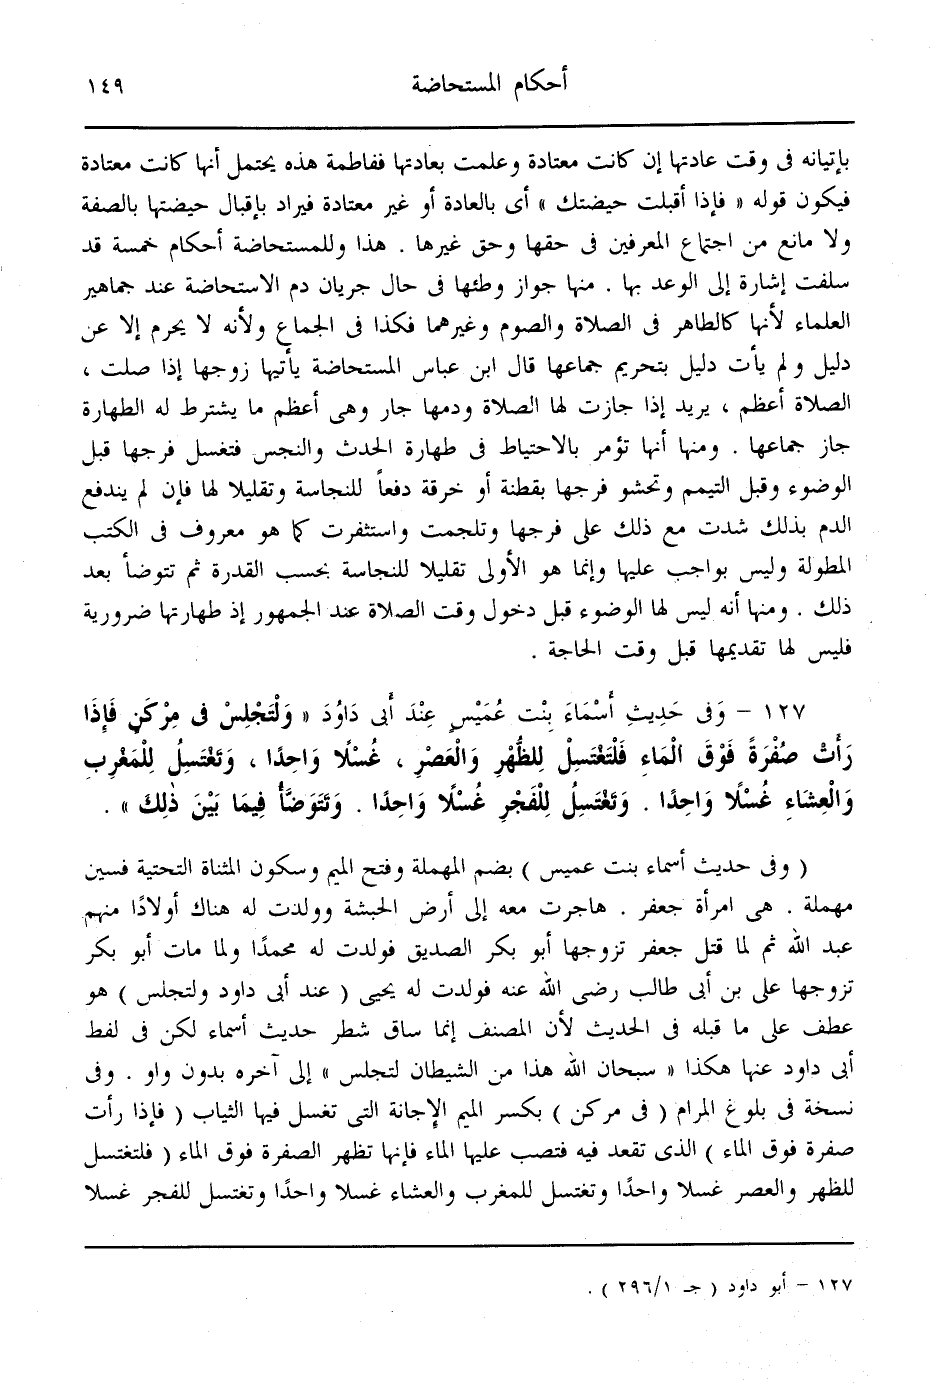 أحكام المستحاضة ١٤٩
بإتيانه فى وقت عادتها إن كانت معتادة وعلمت بعادتها ففاطمة هذه يحتمل أنها كانت معتادة
فيكون قوله « فإذا أقبلت حيضتك » أى بالعادة أو غير معتادة فيراد بإقبال حيضتها بالصفة
ولا مانع من اجتماع المعرفين فى حقها وحق غيرها . هذا وللمستحاضة أحكام خمسة قد
سلفت إشارة إلى الوعد بها . منها جواز وطئها فى حال جريان دم الاستحاضة عند جماهير
العلماء لأنها كالطاهر فى الصلاة والصوم وغيرهما فكذا فى الجماع ولأنه لا يحرم إلا عن
دليل ولم يأت دليل بتحريم جماعها قال ابن عباس المستحاضة يأتيها زوجها إذا صلت ،
الصلاة أعظم ، يريد إذا جازت لها الصلاة ودمها جار وهى أعظم ما يشترط له الطهارة
جاز جماعها . ومنها أنها تؤمر بالاحتياط فى طهارة الحدث والنجس فتغسل فرجها قبل
الوضوء وقبل التيمم وتحشو فرجها بقطنة أو خرقة دفعاً للنجاسة وتقليلا لها فإن لم يندفع
الدم بذلك شدت مع ذلك على فرجها وتلجمت واستثفرت كما هو معروف فى الكتب
المطولة وليس بواجب عليها وإنما هو الأولى تقليلا للنجاسة بحسب القدرة ثم تتوضأ بعد
ذلك . ومنها أنه ليس لها الوضوء قبل دخول وقت الصلاة عند الجمهور إذ طهارتها ضرورية
فليس لها تقديمها قبل وقت الحاجة .
١٢٧ – وَفى حَدِيثِ أَسْمَاءَ بِنْتِ عُمَيْسٍ عِنْدَ أَبى دَاوُدَ « وَلْتَجْلِسْ فى مِرْكَنٍ فَإِذَا
رَأَتْ صُفْرَةً فَوْقَ الْمَاءِ فَلْتَغْتَسِلْ لِلظُّهْرِ وَالْعَصْرِ ، غُسْلًا وَاحِدًا ، وَتَغْتَسِلُ لِلْمَغْرِبِ
وَالْعِشَاءِ غُسْلًا وَاحِدًا . وَتَغْتَسِلُ لِلْفَجْرِ غُسْلًا وَاحِدًا . وَتَتَوَضَّأُ فِيمَا بَيْنَ ذٰلِكَ » .
( وفى حديث أسماء بنت عميس ) بضم المهملة وفتح الميم وسكون المثناة التحتية فسين
مهملة . هى امرأة جعفر . هاجرت معه إلى أرض الحبشة وولدت له هناك أولادًا منهم
عبد الله ثم لما قتل جعفر تزوجها أبو بكر الصديق فولدت له محمدًا ولما مات أبو بكر
تزوجها على بن أبى طالب رضى الله عنه فولدت له يحيى ( عند أبى داود ولتجلس ) هو
عطف على ما قبله فى الحديث لأن المصنف إنما ساق شطر حديث أسماء لكن فى لفط
أبى داود عنها هكذا « سبحان الله هذا من الشيطان لتجلس » إلى آخره بدون واو . وفى
نسخة فى بلوغ المرام ( فى مركن ) بكسر الميم الإجانة التى تغسل فيها الثياب ( فإذا رأت
صفرة فوق الماء ) الذى تقعد فيه فتصب عليها الماء فإنها تظهر الصفرة فوق الماء ( فلتغتسل
للظهر والعصر غسلا واحدًا وتغتسل للمغرب والعشاء غسلا واحدًا وتغتسل للفجر غسلا
١٢٧ – أبو داود ( جـ ٢٩٦/١ ) .